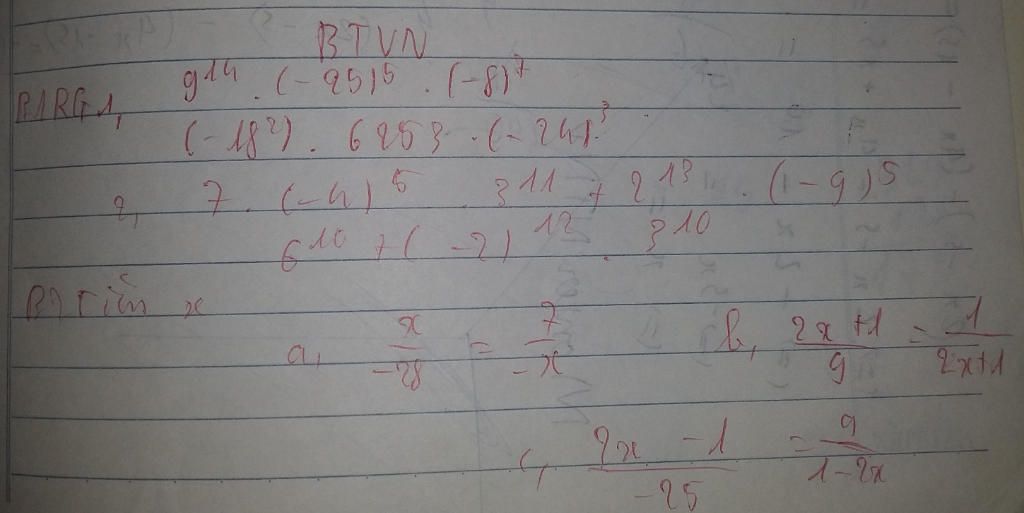 BTVN
B1RG1, 9^14 . (-25)^5 . (-8)^7
(-18^2) . 6253 . (-24)^3
2, 7 . (-4)^5 . 3^11 + 2^13 . (-9)^5
6^10 + (-2)^12 . 3^10
B2 Tìm x
a, x/-28 = 7/-x b, 2x+1/9 = 1/2x+1
c, 2x-1/-25 = 9/1-2x